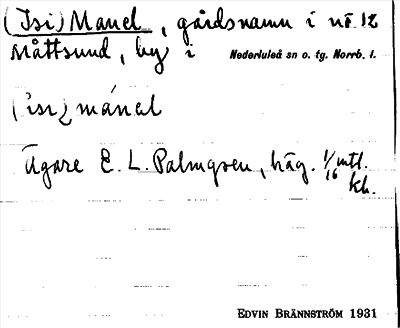 (Isi)Manel, gårdsnamn i nö. 12
Måttsund, by i Nederluleå sn o. tg. Norrb. l.
('isi)mánel
Ägare E. L. Palmqven, häg. 1/16 mtl.
kb.
EDVIN BRÄNNSTRÖM 1931